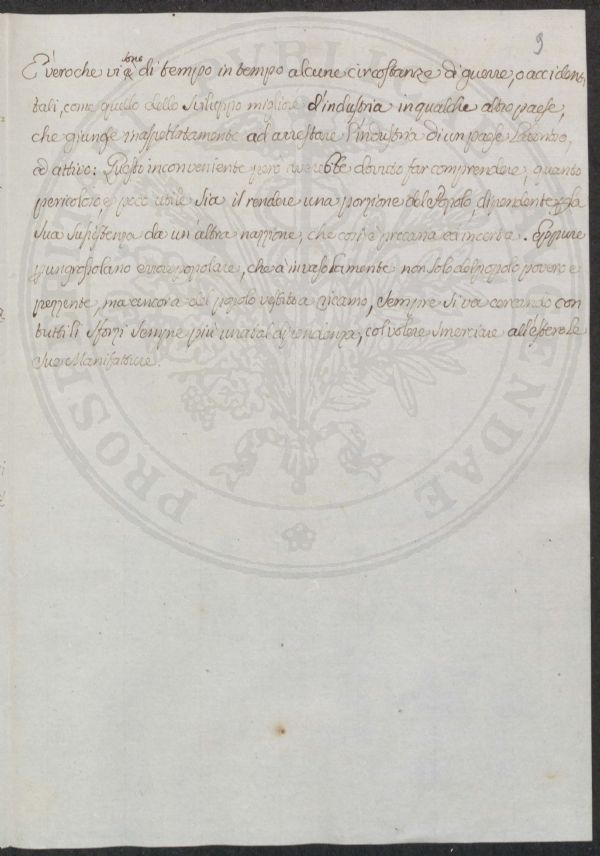 9
E' vero che vi sono di tempo in tempo alcune circostanze di guerre, o acciden-
tali, come quello dello sviluppo migliore d'industria in qualche altro paese,
che giunge inaspettatamente ad arrestare l'industria di un paese laborioso,
ed attivo: Questo inconveniente però avrebbe dovuto far comprendere, quanto
pericoloso, e poco utile sia il rendere una porzione del Popolo, dipendente per la
sua sussistenza da un'altra nazzione, che così è precaria ed incerta. Eppure
per un grossolano errore popolare, che à invaso la mente non solo del popolo povero e
pezzente, ma ancora del popolo vestito a ricamo, sempre si va cercando con
tutti li sforzi sempre più una tal dipendenza, col volere smerciare all'estero le
sue Manifatture.
PROSPERITATI PUBLICAE AUGENDAE